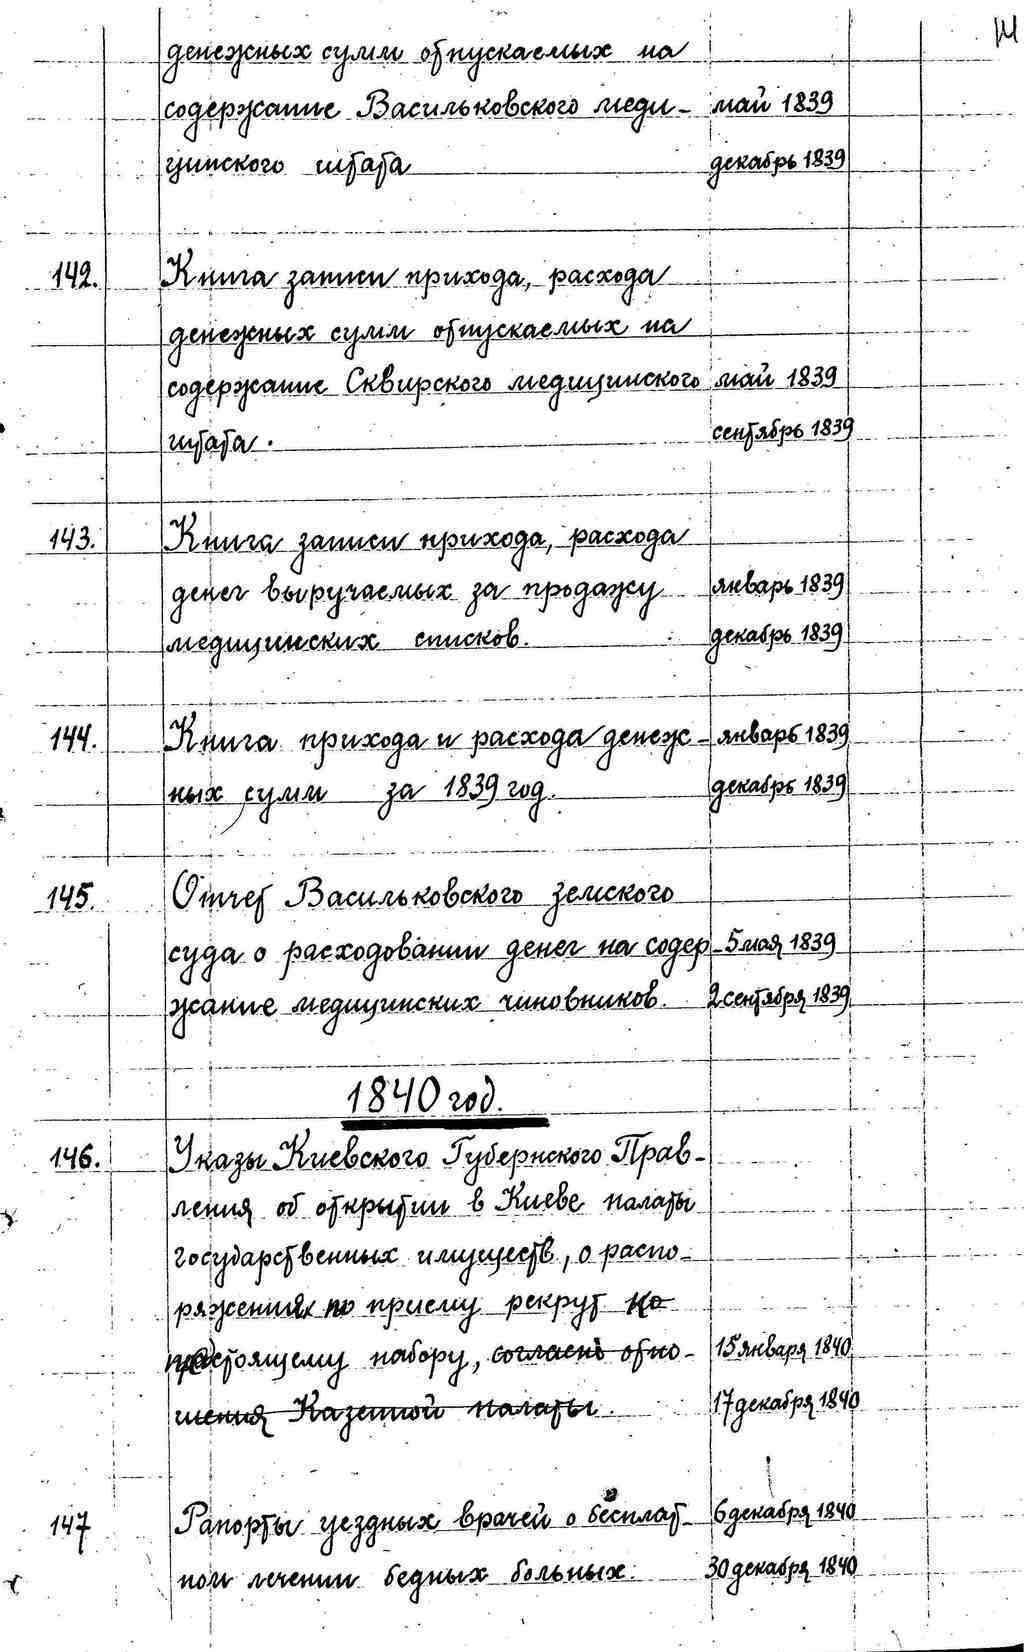 денежных сумм отпускаемых на
содержание Васильковского меди- май 1839
цинского штата декабрь 1839
142. Книга записи прихода, расхода
денежных сумм отпускаемых на
содержание Сквирского медицинского май 1839
штата. сентябрь 1839
143. Книга записи прихода, расхода
денег выручаемых за продажу январь 1839
медицинских списков. декабрь 1839
144. Книга прихода и расхода денеж- январь 1839
ных сумм за 1839 год. декабрь 1839
145. Отчет Васильковского земского
суда о расходовании денег на содер- 5 мая 1839
жание медицинских чиновников. 2 сентября 1839
1840 год.
146. Указы Киевского Губернского Прав-
ления об открытии в Киеве палаты
государственных имуществ, о распо-
ряжениях по приему рекрут
настоящему набору, согласно отно- 15 января 1840
шения Казенной палаты. 17 декабря 1840
147 Рапорты уездных врачей о бесплат- 6 декабря 1840
ном лечении бедных больных. 30 декабря 1840